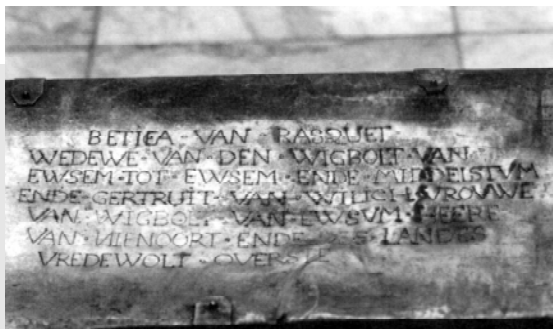 BETIEA · VAN · RASQUET ·
WEDEWE · VAN · DEN · WIGBOLT · VAN ·
EWSEM · TOT · EWSEM · ENDE MIDDELSTVM
ENDE · GERTRUIT · VAN · WILICH · VROUWE
VAN · WIGBOLT · VAN · EWSVM · HEERE
VAN · NIENOORT · ENDE LANDES
VREDEWOLT · OVERSTE